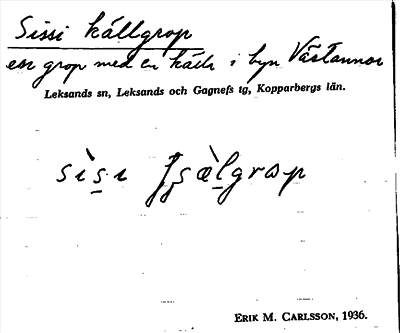 Sissi källgrop
en grop med en källa i byn Västannor
Leksands sn, Leksands och Gagnefs tg, Kopparbergs län.
ERIK M. CARLSSON, 1936.